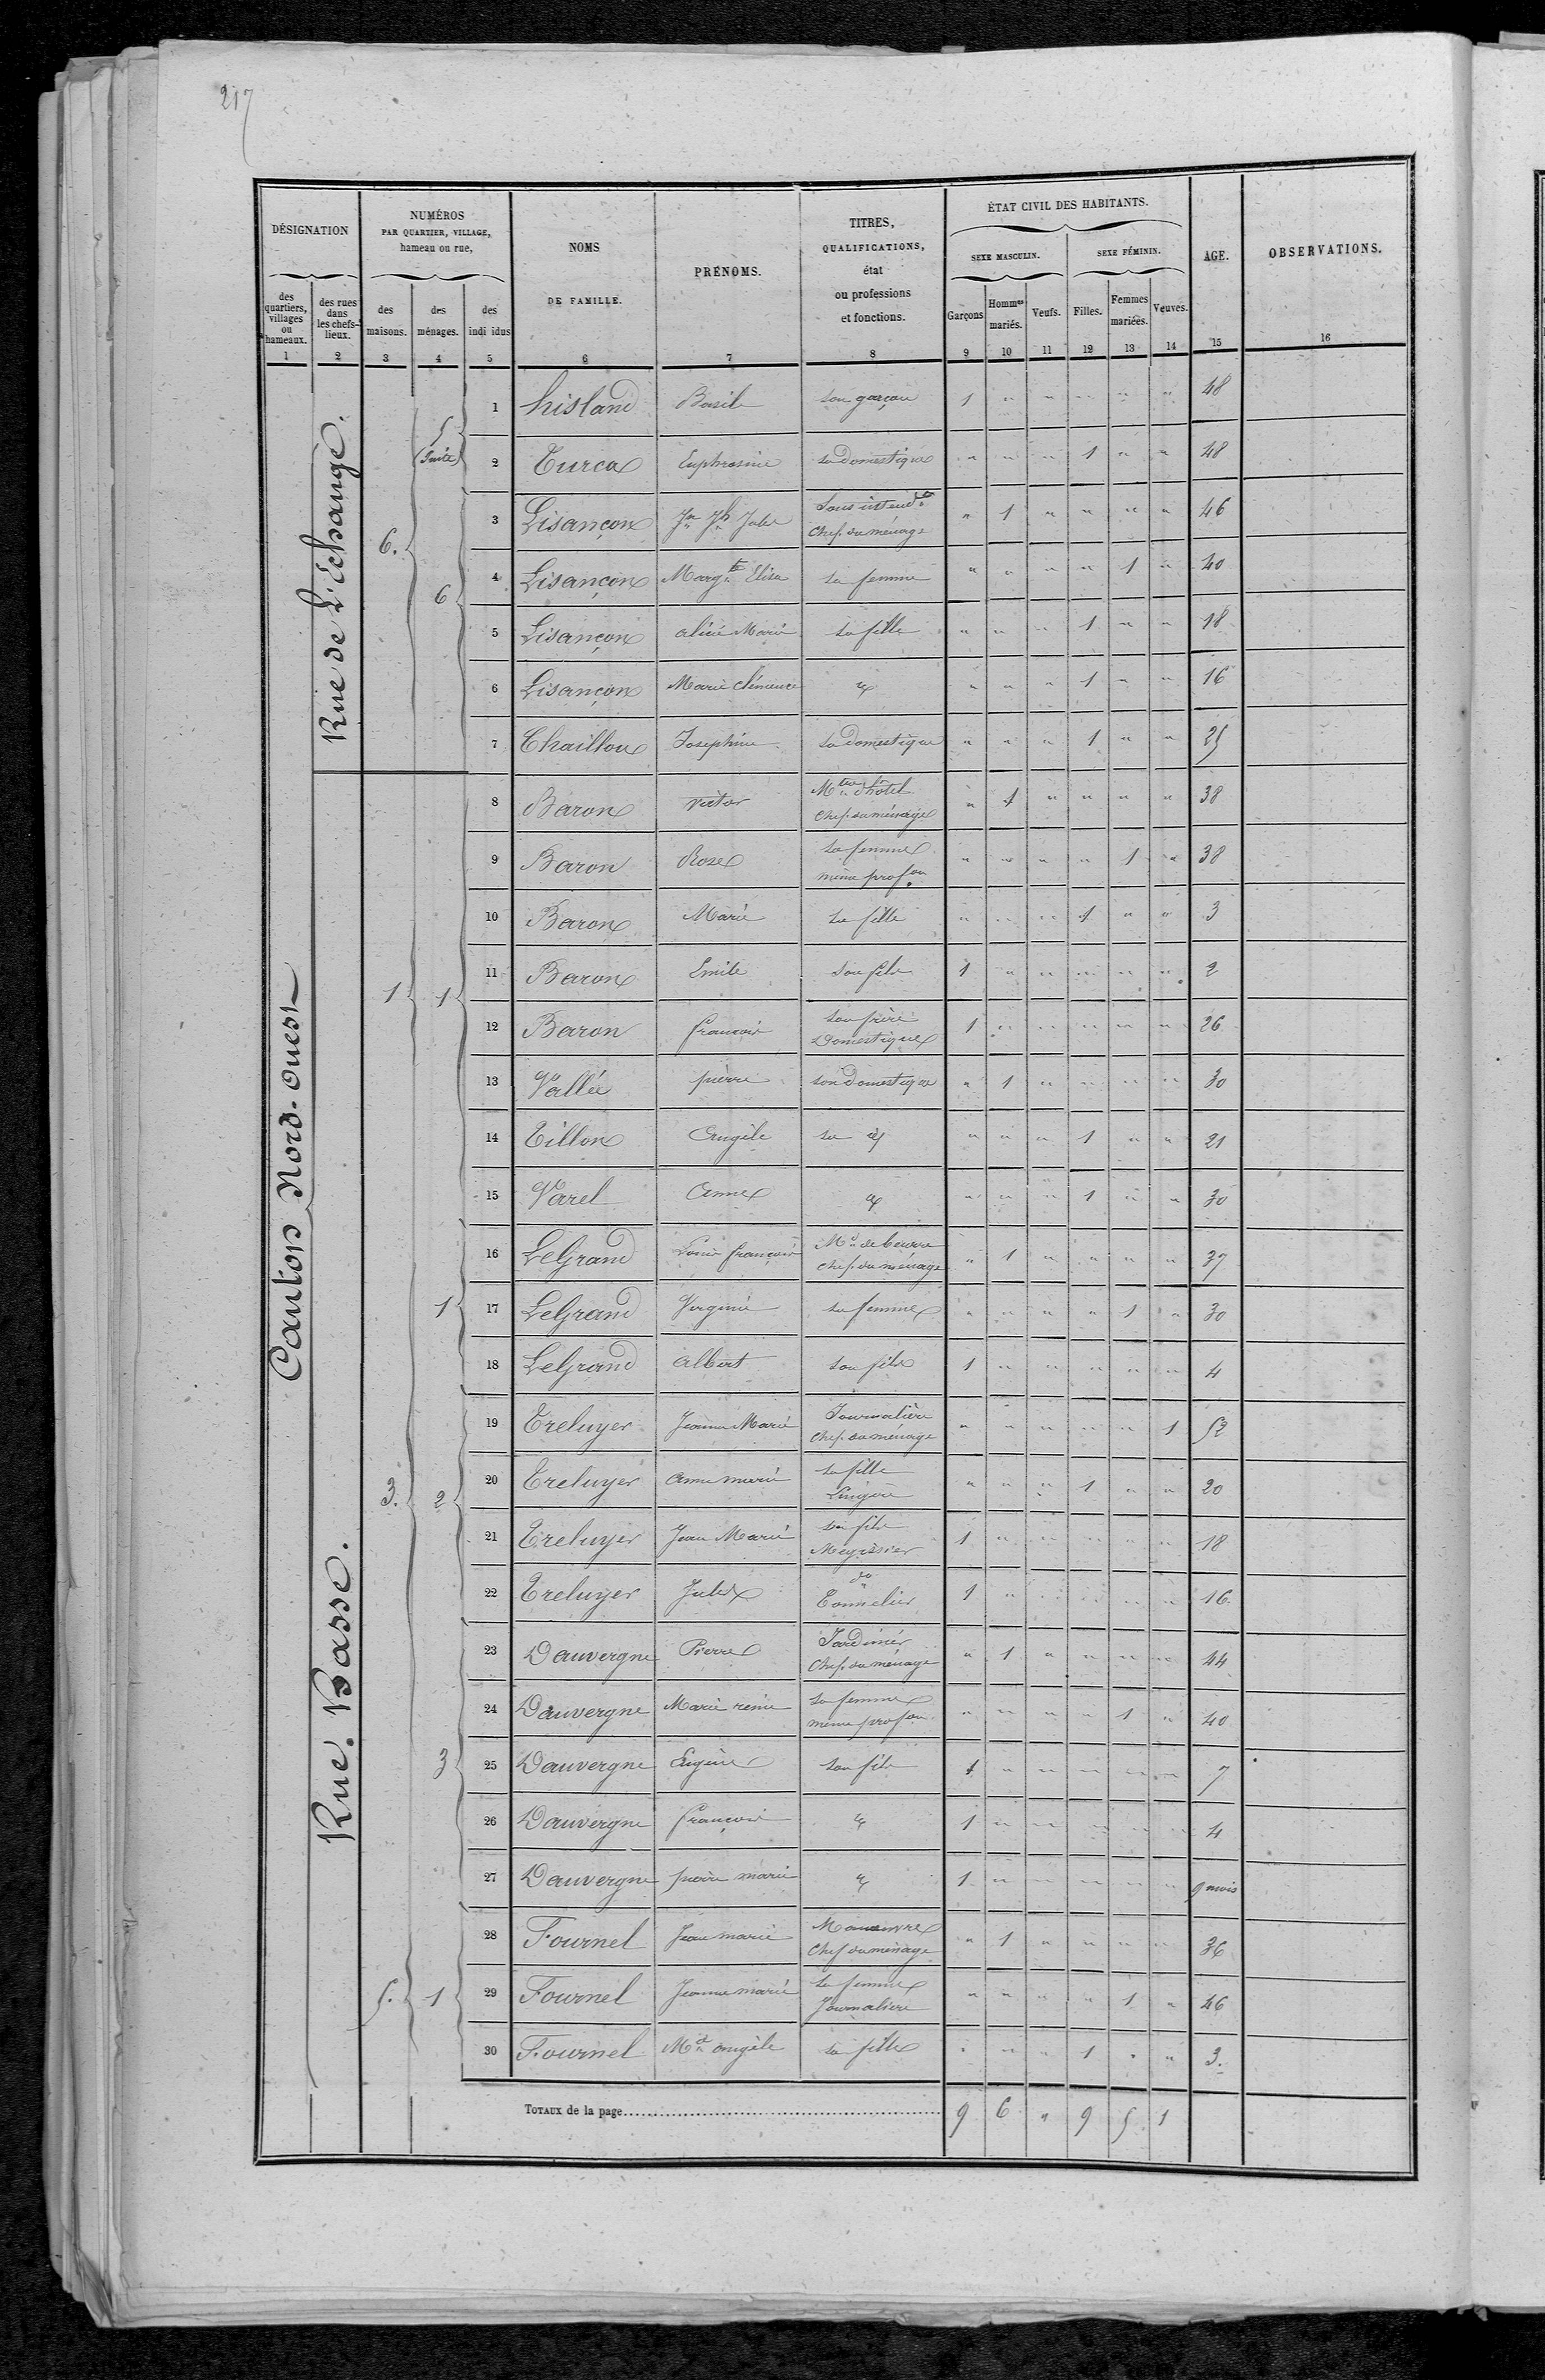 217
DÉSIGNATION
NUMÉROS
PAR QUARTIER, VILLAGE,
hameau ou rue,
NOMS
DE FAMILLE.
PRÉNOMS.
TITRES,
QUALIFICATIONS,
état
ou professions
et fonctions.
ÉTAT CIVIL DES HABITANTS.
SEXE MASCULIN.
SEXE FÉMININ.
AGE.
OBSERVATIONS.
des quartiers, villages ou hameaux.
des rues dans les chefs-lieux.
des maisons.
des ménages.
des indi idus
Garçons
Hommes mariés.
Veufs.
Filles.
Femmes mariées.
Veuves.
1 2 3 4 5 6 7 8 9 10 11 12 13 14 15 16
Canton Nord-Ouest
Rue de L'Echange.
6. 5 (Suite)
1 hisland Basile son garçon 1 " " " " " 48
2 Turca Euphrosine sa domestique " " " 1 " " 48
6
3 Lisançon Jn Jh Jules Sous intendt Chef du ménage " 1 " " " " 46
4 Lisançon Margte Elisa sa femme " " " " 1 " 40
5 Lisançon alice Marie sa fille " " " 1 " " 18
6 Lisançon Marie Clémence " " " 1 " " 16
7 Chaillou Josephine sa domestique " " " 1 " " 25
Rue Basse.
1 1
8 Baron Victor Mtre d'hôtel Chef du ménage " 1 " " " " 38
9 Baron Rose sa femme même profon " " " " 1 " 38
10 Baron Marie sa fille " " " 1 " " 3
11 Baron Emile Son fils 1 " " " " " 2
12 Baron françois son frère Domestique 1 " " " " " 26
13 Vallée pierre son domestique " 1 " " " " 30
14 Tillon Angèle sa id " " " 1 " " 21
15 Varel Anne id " " " 1 " " 30
3. 1
16 LeGrand Louis françois Md de beurre Chef du ménage " 1 " " " " 37
17 LeGrand Virginie sa femme " " " " 1 " 30
18 LeGrand Albert son fils 1 " " " " " 4
2
19 Treluyer Jeanne Marie Journalière Chef du ménage " " " " " 1 52
20 Treluyer anne marie sa fille Lingère " " " 1 " " 20
21 Treluyer Jean Marie son fils Megissier 1 " " " " " 18
22 Treluyer Jules do Tonnelier 1 " " " " " 16
3
23 Dauvergne Pierre Jardinier Chef du ménage " 1 " " " " 44
24 Dauvergne Marie reine sa femme même profon " " " " 1 " 40
25 Dauvergne Eugène son fils 1 " " " " " 7
26 Dauvergne françois id 1 " " " " " 4
27 Dauvergne pierre marie id 1 " " " " " 9 mois
5. 1
28 Fournel Jean marie Manœuvre Chef du ménage " 1 " " " " 36
29 Fournel Jeanne marie sa femme Journaliere " " " " 1 " 46
30 Fournel angèle sa fille " " " 1 " " 3.
TOTAUX de la page 9 6 " 9 5 1